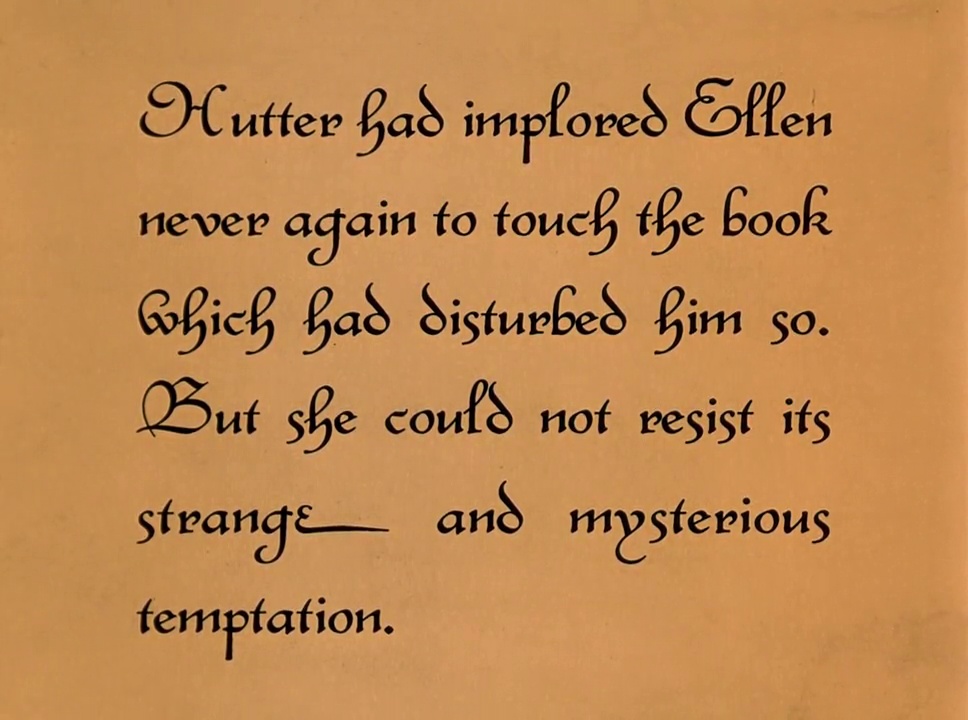 Hutter had implored Ellen
never again to touch the book
which had disturbed him so.
But she could not resist its
strange and mysterious
temptation.